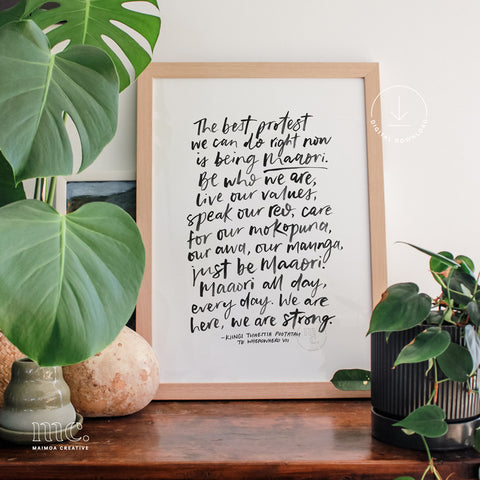 The best protest
we can do right now
is being Maaori.
Be who we are,
live our values,
speak our reo, care
for our mokopuna,
our awa, our maunga,
just be Maaori.
Maaori all day,
every day. We are
here, we are strong.
-KIINGI TUHEITIA POOTATAU
TE WHEROWHERO VII
DIGITAL DOWNLOAD
mc.
MAIMOA CREATIVE